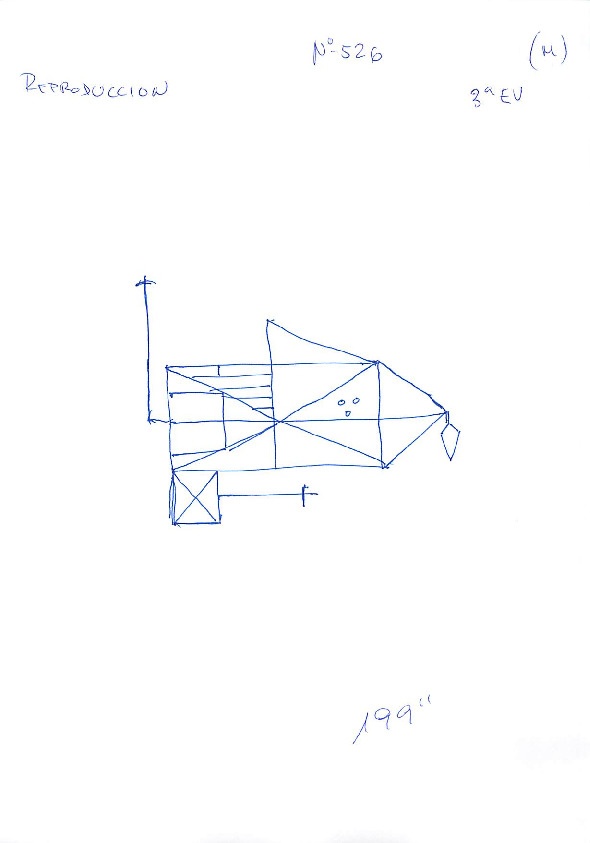 Nº-526 (M)
REPRODUCCION 3ª EV
199"